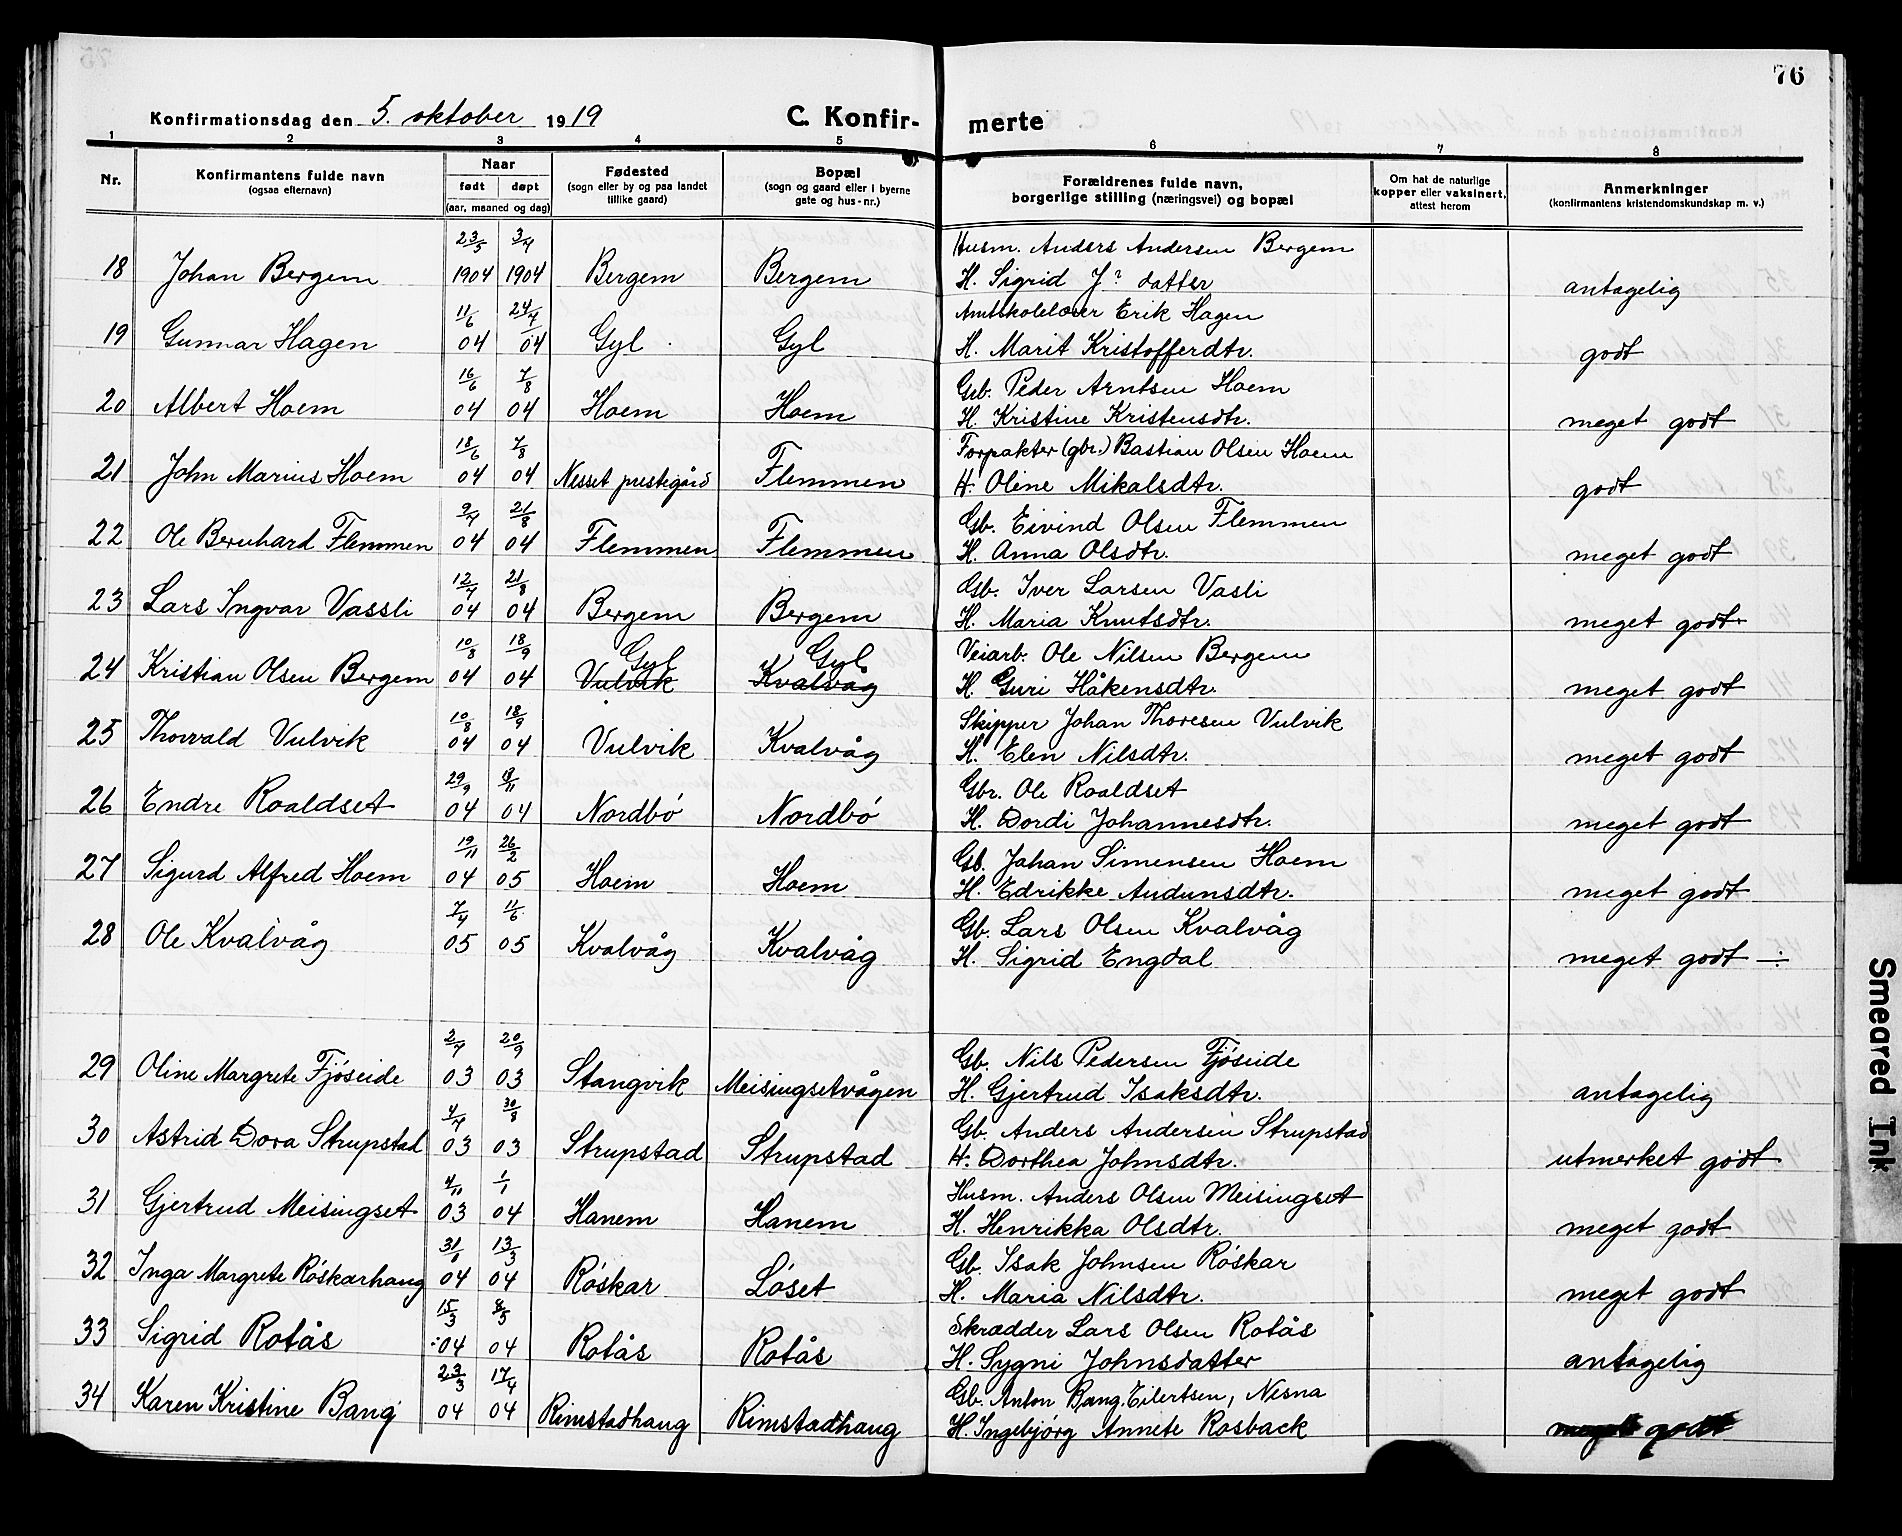 76
Konfirmationsdag den 5. oktober 1919 C. Konfir- merte
1 2 3 4 5 6 7 8
Nr. Konfirmantens fulde navn (ogsaa efternavn) Naar født døpt (aar, maaned og dag) Fødested (sogn eller by og paa landet tillike gaard) Bopæl (sogn og gaard eller i byerne gate og hus-nr.) Forældrenes fulde navn, borgerlige stilling (næringsvei) og bopæl Om hat de naturlige kopper eller vaksinert, attest herom Anmerkninger (konfirmantens kristendomskundskap m. v.)
23/5 3/7 Husm. Anders Andersen Bergem
18 Johan Bergem 1904 1904 Bergem Bergem H. Sigrid J? datter antagelig
11/6 24/7 Amtskolelærer Erik Hagen
19 Gunnar Hagen 04 04 Gyl Gyl H. Marit Kristofferdtr. godt
16/6 7/8 Gb. Peder Arntsen Hoem
20 Albert Hoem 04 04 Hoem Hoem H. Kristine Kristensdtr. meget godt
18/6 7/8 Forpakter (gbr.) Bastian Olsen Hoem
21 John Marius Hoem 04 04 Nesset prestegård Flemmen H. Oline Mikalsdtr. godt
9/7 21/8 Gb. Eivind Olsen Flemmen
22 Ole Bernhard Flemmen 04 04 Flemmen Flemmen H. Anna Olsdtr. meget godt
12/7 21/8 Gb. Iver Larsen Vasli
23 Lars Ingvar Vassli 04 04 Bergem Bergem H. Maria Knutsdtr. meget godt
10/8 18/9 Gyl Gyl Veiarb. Ole Nilsen Bergem
24 Kristian Olsen Bergem 04 04 Vulvik Kvalvåg H. Guri Håkensdtr. meget godt
10/8 18/9 Skipper Johan Thoresen Vulvik
25 Thorvald Vulvik 04 04 Vulvik Kvalvåg H. Elen Nilsdtr. meget godt
29/9 Gbr. Ole Roaldset
26 Endre Roaldset 04 04 Nordbø Nordbø H. Dordi Johannesdtr. meget godt
19/11 26/2 Gb. Johan Simensen Hoem
27 Sigurd Alfred Hoem 04 05 Hoem Hoem H. Edrikke Audunsdtr. meget godt
7/4 11/6 Gb. Lars Olsen Kvalvåg
28 Ole Kvalvåg 05 05 Kvalvåg Kvalvåg H. Sigrid Engdal meget godt ÷
2/7 20/9 Gb. Nils Pedersen Fjøseide
29 Oline Margrete Fjøseide 03 03 Stangvik Meisingsetvågen H. Gjertrud Isaksdtr. antagelig
4/7 30/8 Gb. Anders Andersen Strupstad
30 Astrid Dora Strupstad 03 03 Strupstad Strupstad H. Dorthea Johnsdtr. utmerket godt
4/11 1/1 Husm. Anders Olsen Meisingset
31 Gjertrud Meisingset 03 04 Hanem Hanem H. Henrikka Olsdtr. meget godt
31/1 13/3 Gb. Isak Johnsen Røskar
32 Inga Margrete Røskarhaug 04 04 Røskar Løset H. Maria Nilsdtr. meget godt
15/3 8/5 Skrædder Lars Olsen Rotås
33 Sigrid Rotås 04 04 Rotås Rotås H. Sygni Johnsdatter antagelig
23/3 17/4 Gb. Anton Bang Eilertsen, Nesna
34 Karen Kristine Bang 04 04 Rimstadhaug Rimstadhaug H. Ingebjørg Annete Rosback meget godt
Smeared Ink